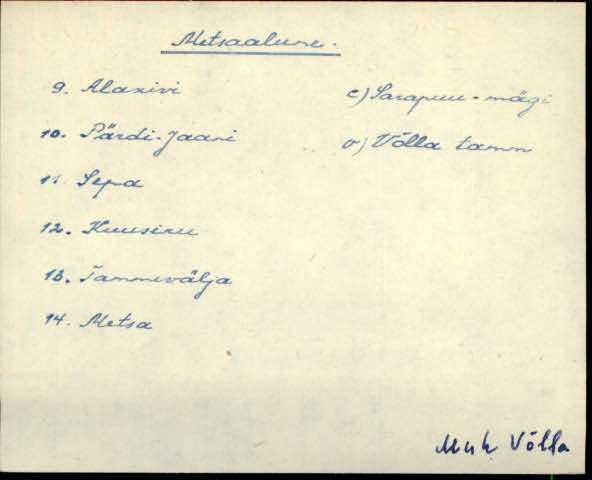 Metsaalune.
9. Alaxivi
10. Pärdi-Jaani
11. Sepa
12. Kuusiru
13. Tammevälja
14. Metsa
c) Sarapuu-mägi
v) Võlla tamm
Muh Võlla